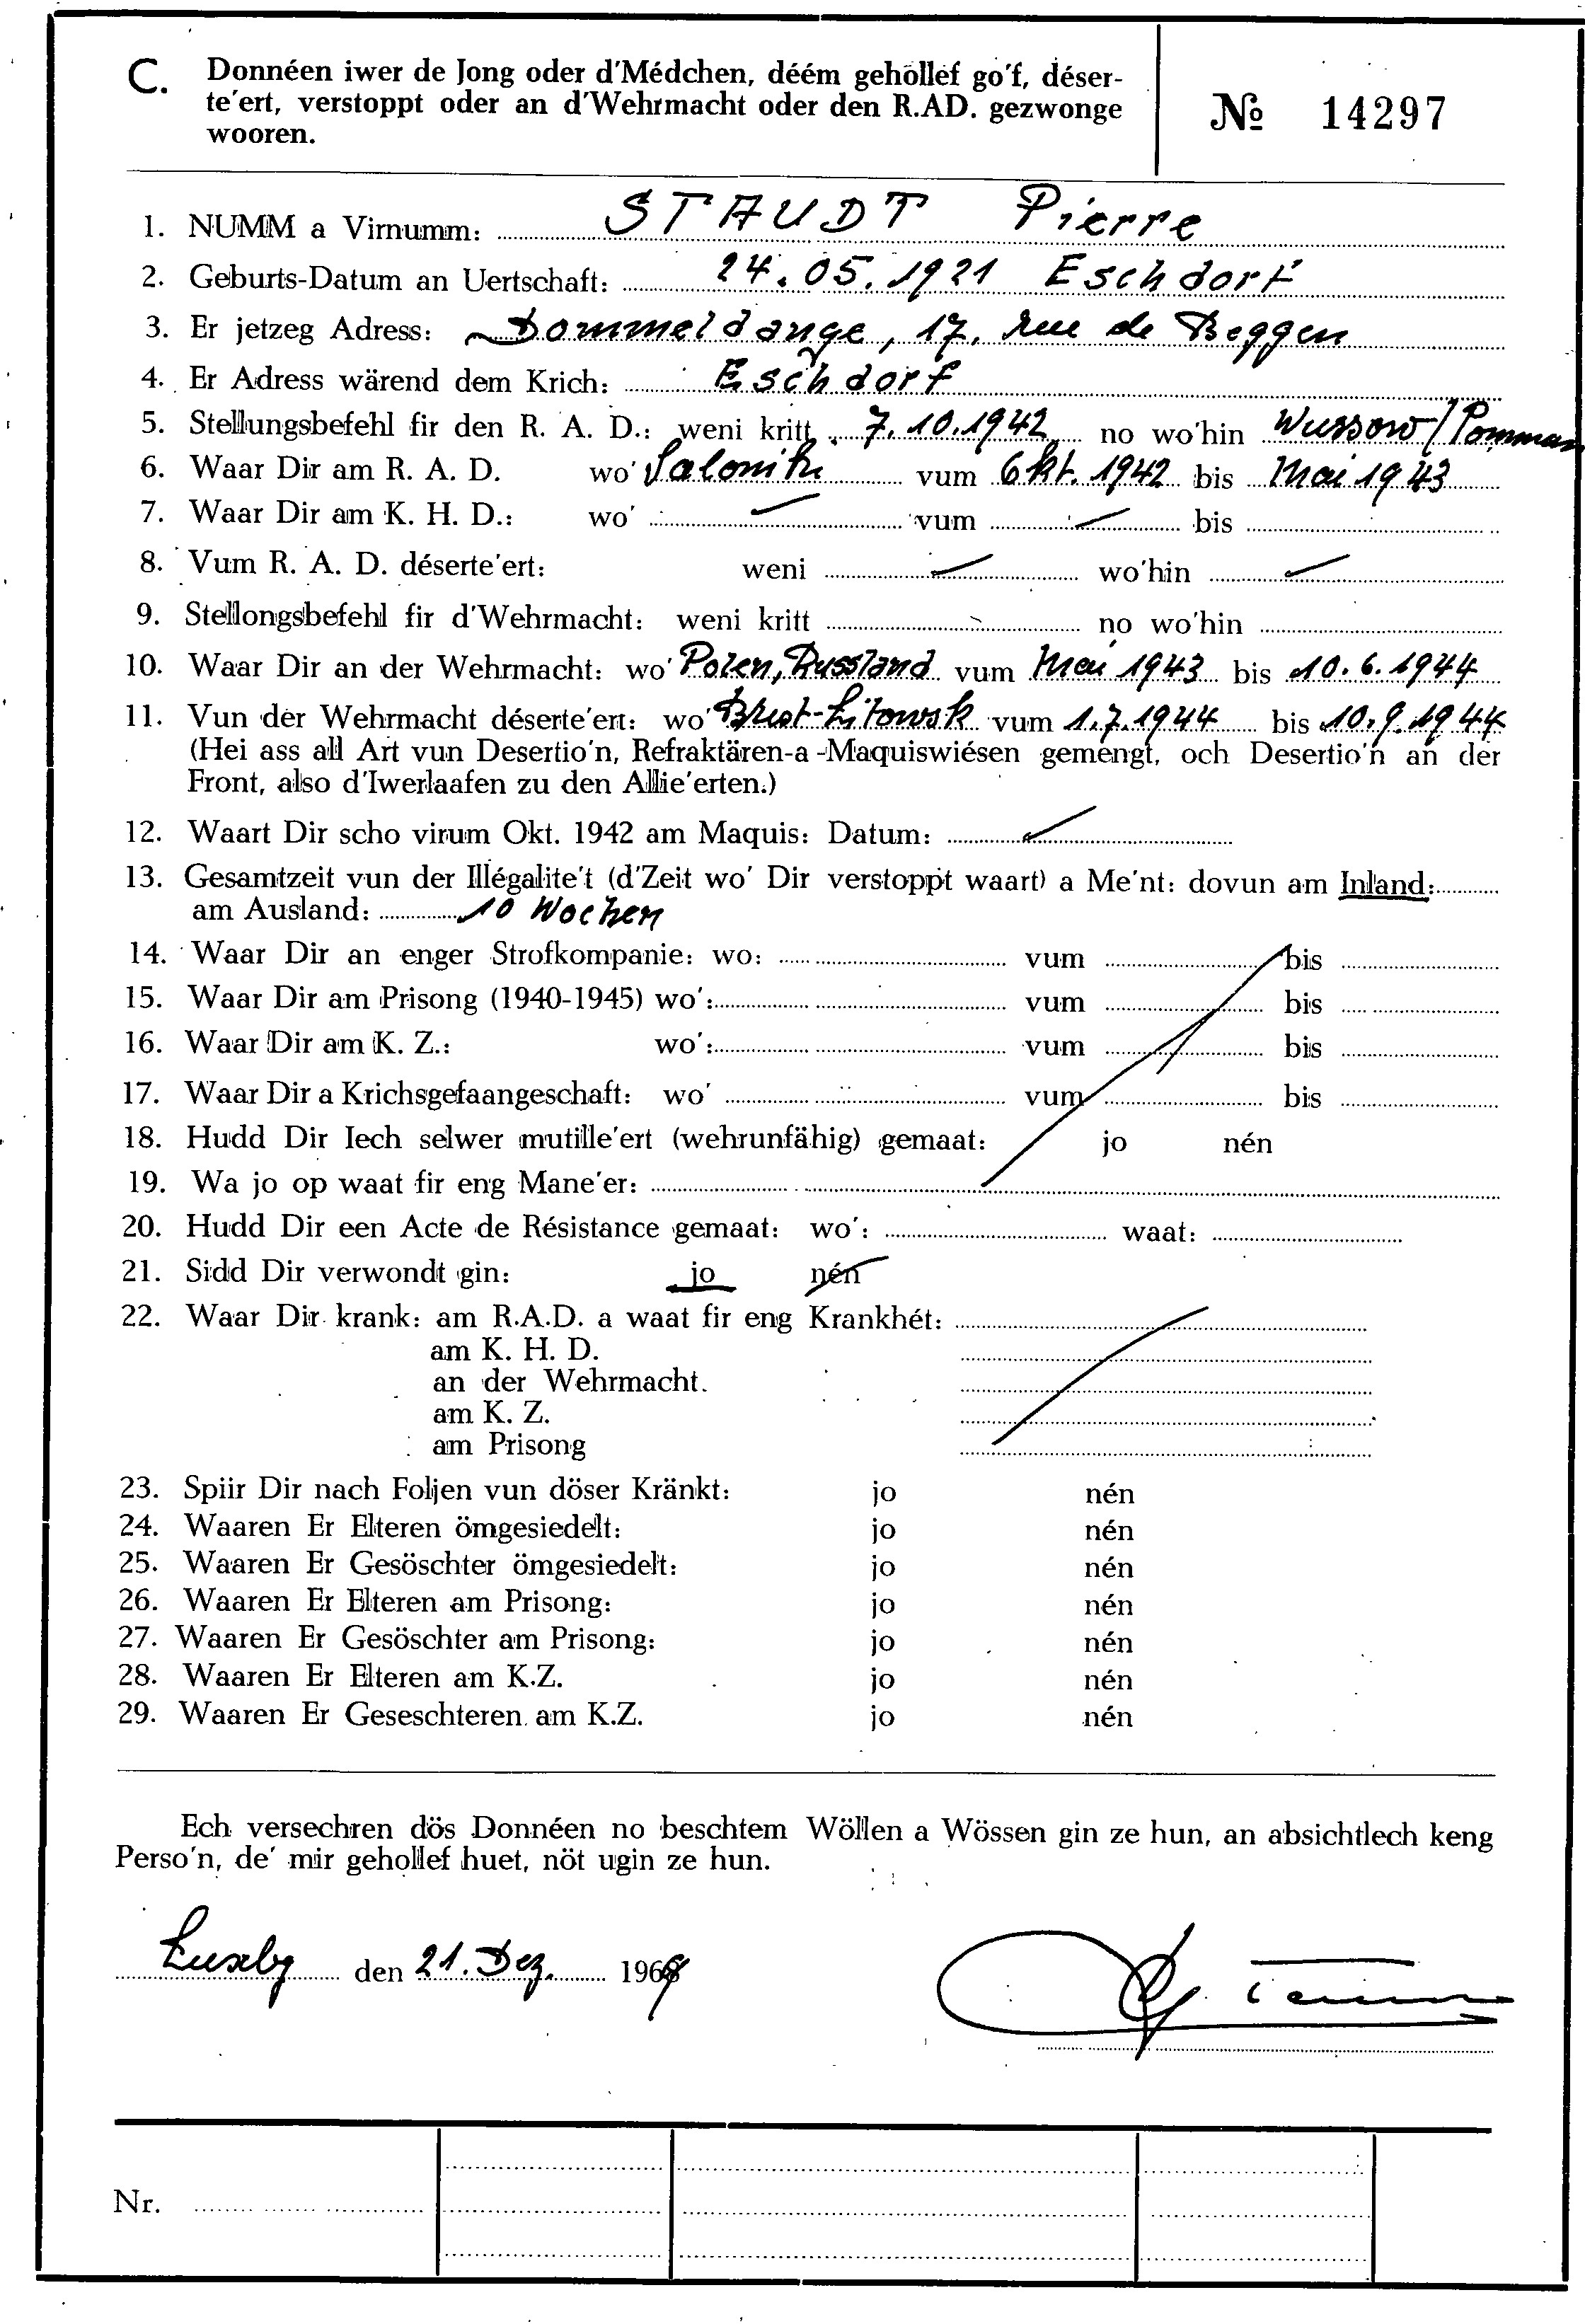 C. Donnéen iwer de Jong oder d'Médchen, déém gehöllef go'f, déser-
te'ert, verstoppt oder an d'Wehrmacht oder den R.AD. gezwonge
wooren.
№ 14297
1. NUMM a Virnumm: STAUDT Pierre
2. Geburts-Datum an Uertschaft: 24.05.1921 Eschdorf
3. Er jetzeg Adress: Dommeldange, 17, rue de Beggen
4. Er Adress wärend dem Krich: Eschdorf
5. Stellungsbefehl fir den R. A. D.: weni kritt 7.10.1942 no wo'hin Wussow/Pommern
6. Waar Dir am R. A. D. wo' Saloniki vum Okt. 1942 bis Mai 1943
7. Waar Dir am K. H. D.: wo' vum bis
8. Vum R. A. D. déserte'ert: weni wo'hin
9. Stellongsbefehl fir d'Wehrmacht: weni kritt no wo'hin
10. Waar Dir an der Wehrmacht: wo' Polen, Russland vum Mai 1943 bis 10.6.1944
11. Vun der Wehrmacht déserte'ert: wo' Brest-Litowsk vum 1.7.1944 bis 10.9.1944
(Hei ass all Art vun Desertio'n, Refraktären-a-Maquiswiésen gemengt, och Desertio'n an der
Front, also d'Iwerlaafen zu den Allie'erten.)
12. Waart Dir scho virum Okt. 1942 am Maquis: Datum:
13. Gesamtzeit vun der Illégalite't (d'Zeit wo' Dir verstoppt waart) a Me'nt: dovun am Inland:
am Ausland: 10 Wochen
14. Waar Dir an enger Strofkompanie: wo: vum bis
15. Waar Dir am Prisong (1940-1945) wo': vum bis
16. Waar Dir am K. Z.: wo': vum bis
17. Waar Dir a Krichsgefaangeschaft: wo' vum bis
18. Hudd Dir Iech selwer mutille'ert (wehrunfähig) gemaat: jo nén
19. Wa jo op waat fir eng Mane'er:
20. Hudd Dir een Acte de Résistance gemaat: wo': waat:
21. Sidd Dir verwondt gin: jo nén
22. Waar Dir krank: am R.A.D. a waat fir eng Krankhét:
am K. H. D.
an der Wehrmacht.
am K. Z.
am Prisong
23. Spiir Dir nach Foljen vun döser Kränkt: jo nén
24. Waaren Er Elteren ömgesiedelt: jo nén
25. Waaren Er Gesöschter ömgesiedelt: jo nén
26. Waaren Er Elteren am Prisong: jo nén
27. Waaren Er Gesöschter am Prisong: jo nén
28. Waaren Er Elteren am K.Z. jo nén
29. Waaren Er Geseschteren am K.Z. jo nén
Ech versechren dös Donnéen no beschtem Wöllen a Wössen gin ze hun, an absichtlech keng
Perso'n, de' mir gehollef huet, nöt ugin ze hun.
Luxbg den 21. Dez. 1969
Nr.